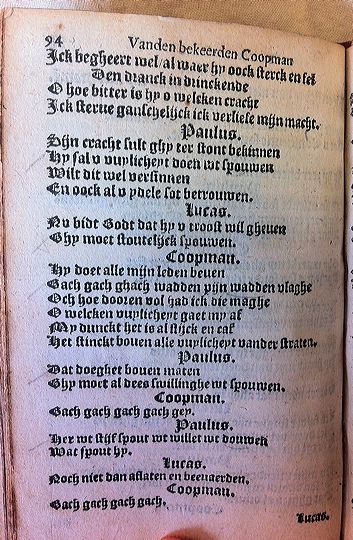 94 Vanden bekeerden Coopman
Ick begheert wel/al waer hy oock sterck en fel
Den dranck in drinckende
O hoe bitter is hy o welcken cracht
Ick sterue gantschelijck ick verliese mijn macht.
Paulus.
Sijn cracht sult ghy ter stont bekinnen
Hy sal v vuylicheyt doen wt spouwen
Wilt dit wel versinnen
En oock al v ydele sot betrouwen.
Lucas.
Nv bidt Godt dat hy v troost wil gheuen
Ghy moet stoutelijck spouwen.
Coopman.
Hy doet alle mijn leden beuen
Gach gach ghach wadden pijn wadden vlaghe
Och hoe dooren vol had ick die maghe
O welcken vuylicheyt gaet my af
My dunckt het is al slijck en caf
Het stinckt bouen alle vuylicheyt vander straten.
Paulus.
Dat doeghet bouen maten
Ghy moet al dees swillinghe wt spouwen.
Coopman.
Gach gach gach gach gey.
Paulus.
Her wt stijf spout wt willet wt douwen
Wat spout hy.
Lucas.
Noch niet dan aflaten en beeuaerden.
Coopman.
Gach gach gach gach.
Lucas.